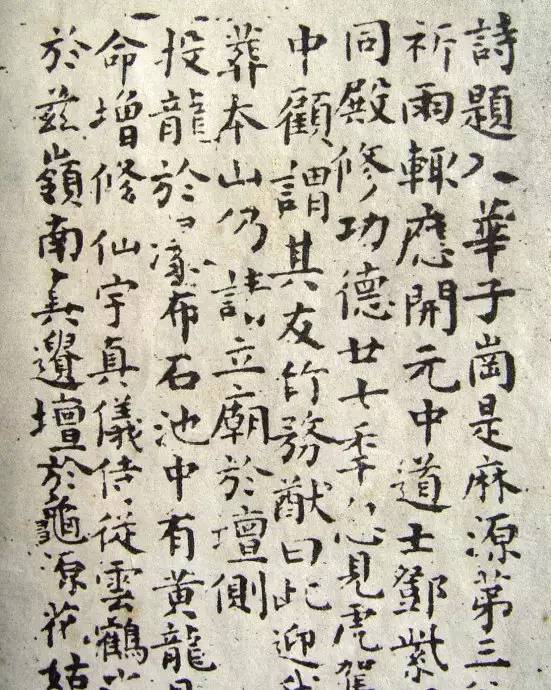 詩題入華子崗是麻源第三
祈雨輒應開元中道士鄧紫
同殿修功德廿七秊忽見虎駕
中顧謂其友竹務猷曰此迎
葬本山仍請立廟於壇側
投龍於瀑布石池中有黃龍
命增修仙宇真儀侍從雲鶴
於茲嶺南真遺壇於龜源花姑